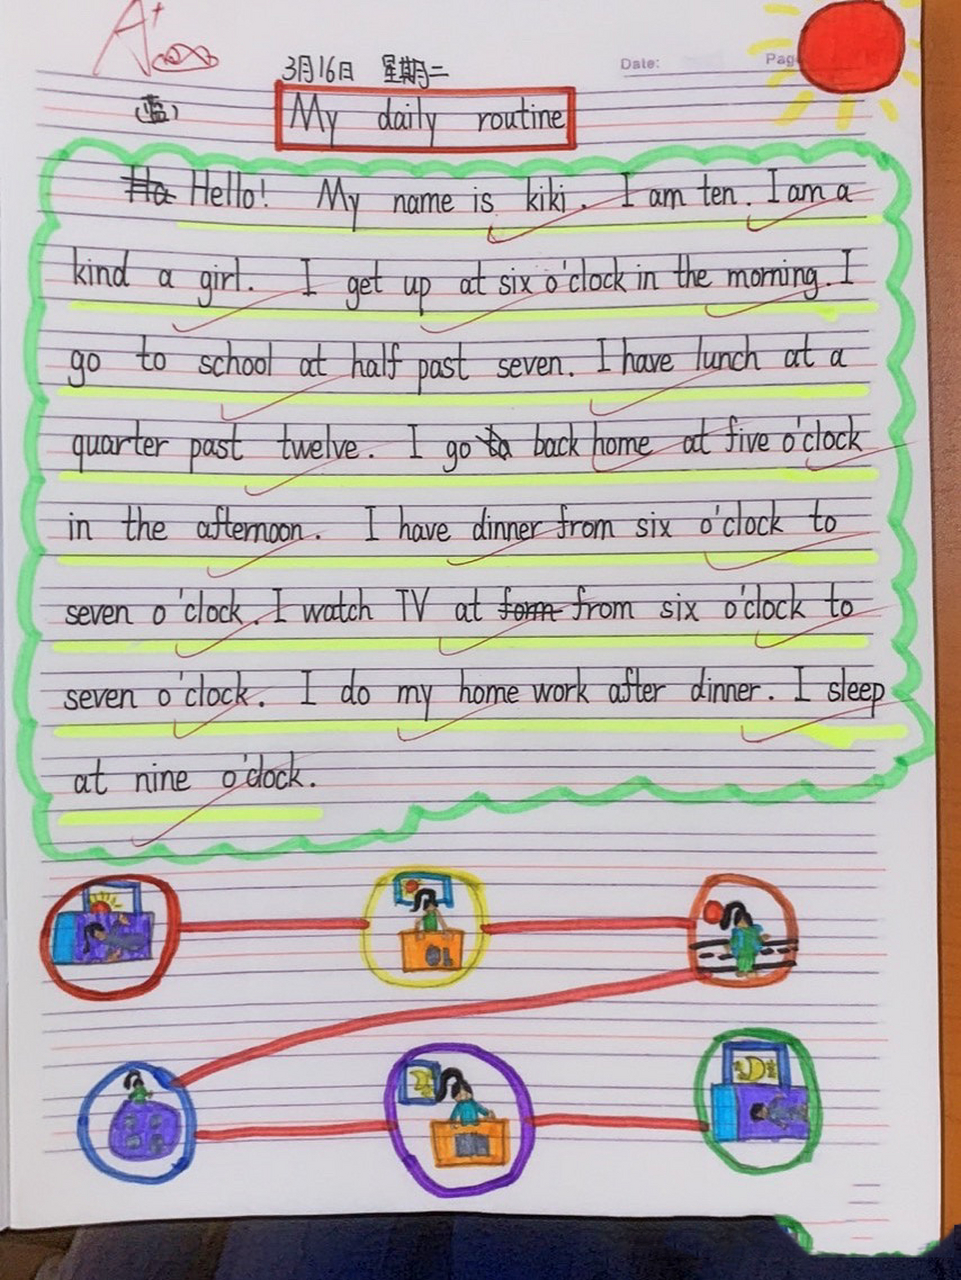 A+
3月16日 星期二
Date:
Pag
(蓝)
My daily routine
Ha Hello! My name is kiki. I am ten. I am a
kind a girl. I get up at six o'clock in the morning. I
go to school at half past seven. I have lunch at a
quarter past twelve. I go to back home at five o'clock
in the afternoon. I have dinner from six o'clock to
seven o'clock. I watch TV at form from six o'clock to
seven o'clock. I do my home work after dinner. I sleep
at nine o'clock.